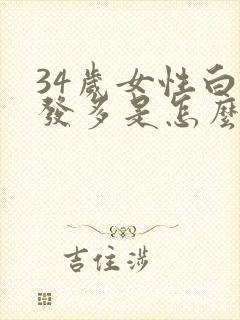 34歲女性白
發多是怎麼
吉住涉